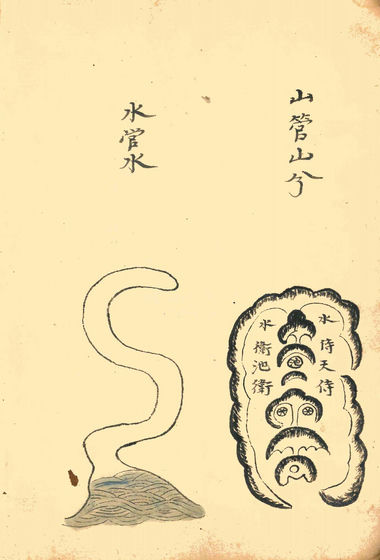 山管山兮
水管水
水侍天侍
水衛池衛